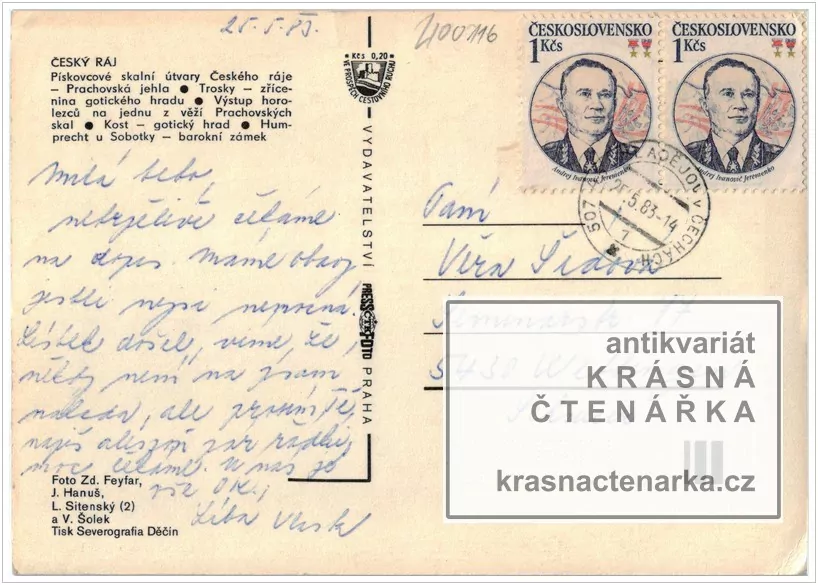 25.5.83.
400116
ČESKÝ RÁJ
Pískovcové skalní útvary Českého ráje
– Prachovská jehla ● Trosky – zříce-
nina gotického hradu ● Výstup horo-
lezců na jednu z věží Prachovských
skal ● Kost – gotický hrad ● Hum-
precht u Sobotky – barokní zámek
Kčs 0,20
VE PROSPĚCH CESTOVNÍHO RUCHU
ČESKOSLOVENSKO
1 Kčs
Andrej Ivanovič Jeremenko
ČESKOSLOVENSKO
1 Kčs
Andrej Ivanovič Jeremenko
507 MLADĚJOV V ČECHÁCH
25.5.83-14
Milá
netrpělivě čekáme
na dopis. Máme obavy
jestli nejsi nemocná
Lístek došel, víme, že
někdy není na psaní
nálada, ale prosím tě,
napiš alespoň pár řádků,
moc čekáme. U nás je
vše O.K.,
Líba
VYDAVATELSTVÍ
PRESSFOTO
PRAHA
Paní
Věra Šídová
5430
antikvariát
KRÁSNÁ
ČTENÁŘKA
krasnactenarka.cz
Foto Zd. Feyfar,
J. Hanuš,
L. Sitenský (2)
a V. Šolek
Tisk Severografia Děčín